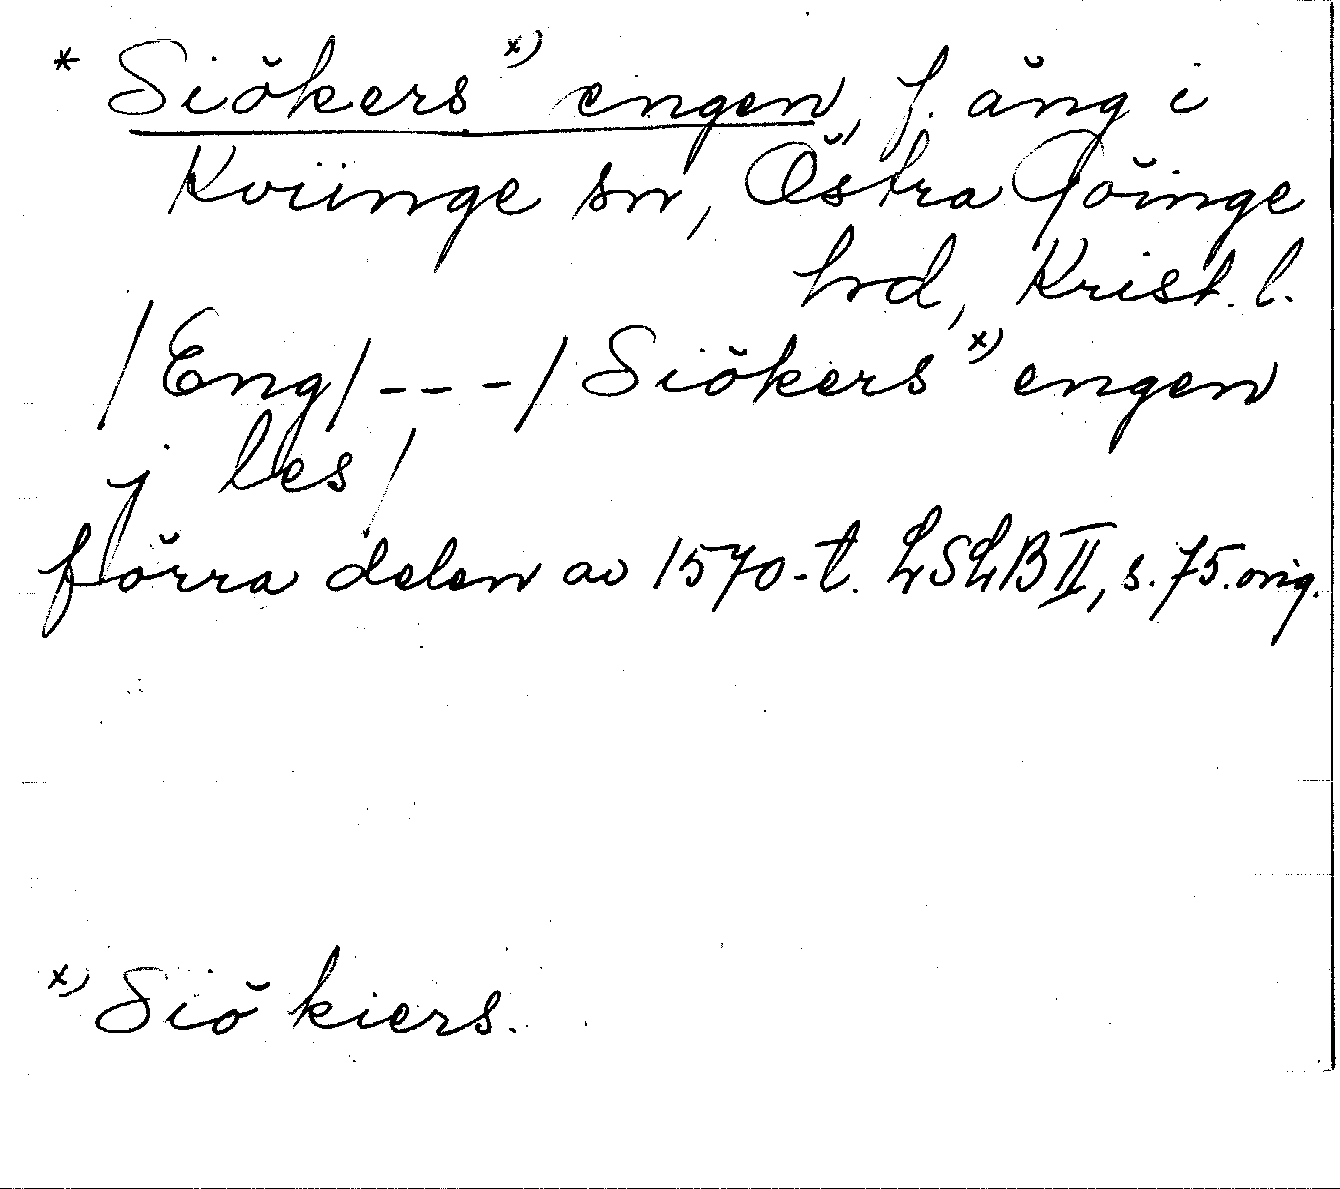 * Siökers x) engen, f. äng i
Kviinge sn, Östra Göinge
hrd, Krist. l.
/Eng/---/Siökers x) engen
j les/
förra delen av 1570-t. LSLB II, s. 75. orig.
x) Siö kiers.